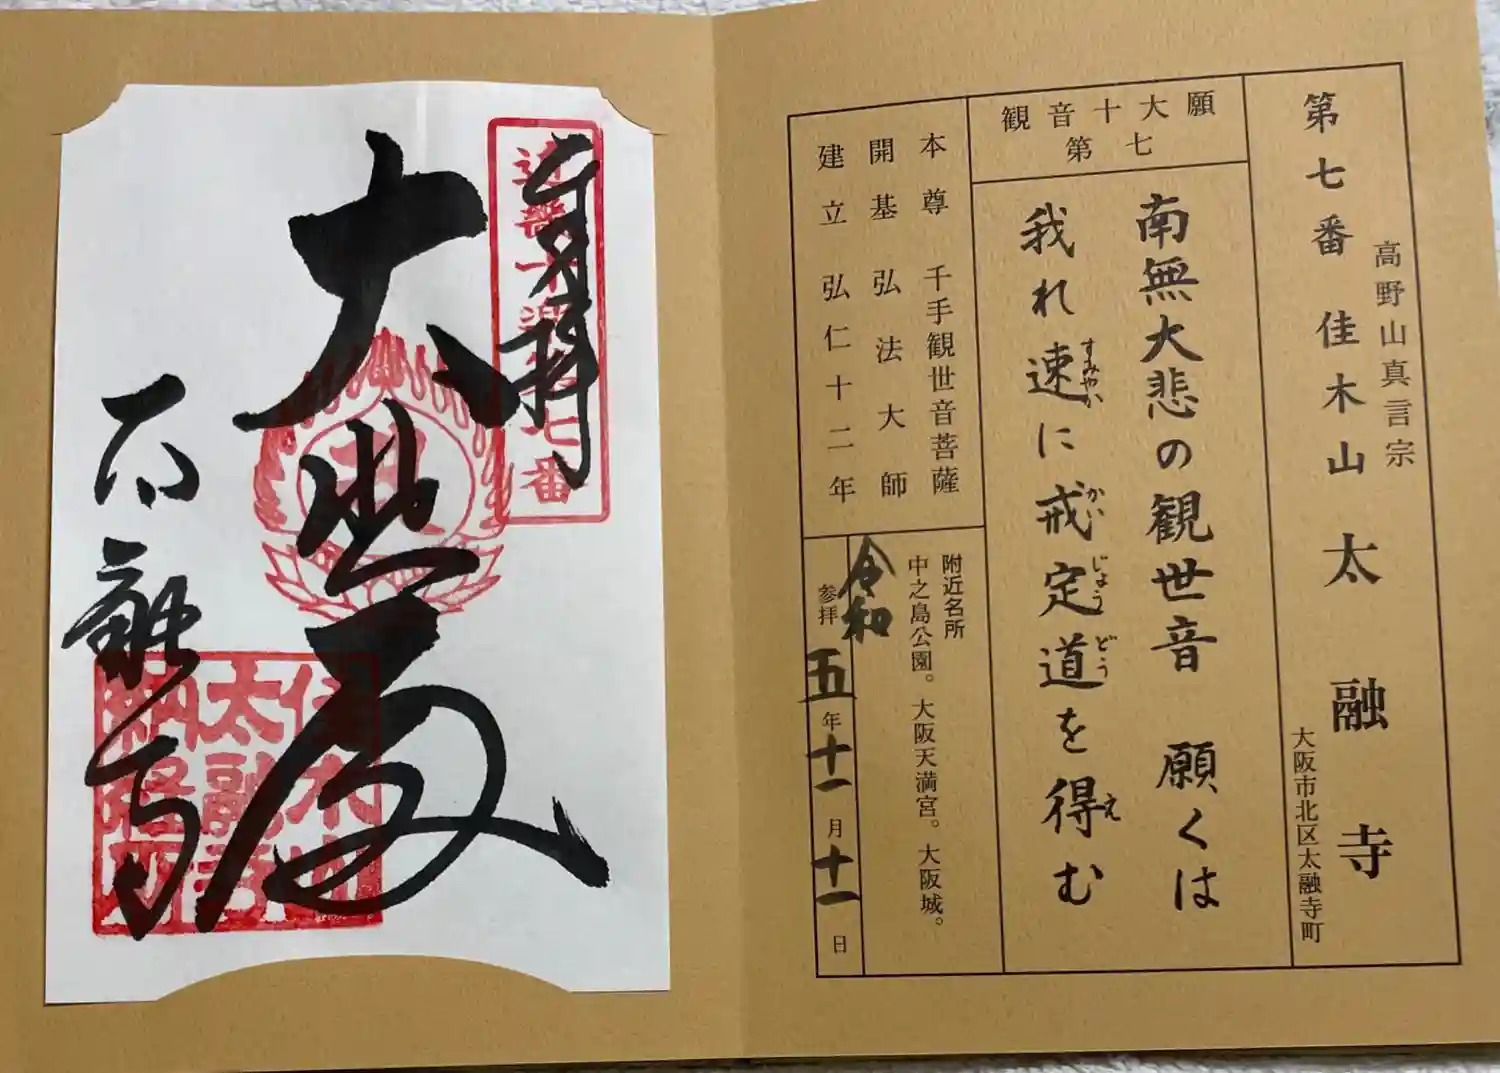 第七番 佳木山 太融寺
高野山真言宗
大阪市北区太融寺町
観音十大願
第七
南無大悲の観世音 願くは
我れ速に戒定道を得む
すみやか
かい
じょう
どう
え
本尊 千手観世音菩薩
開基 弘法大師
建立 弘仁十二年
附近名所
中之島公園。大阪天満宮。大阪城。
参拝
令和
五年十一月十一日
奉拝
大悲殿
太融寺
佳木山
太融寺
納経所